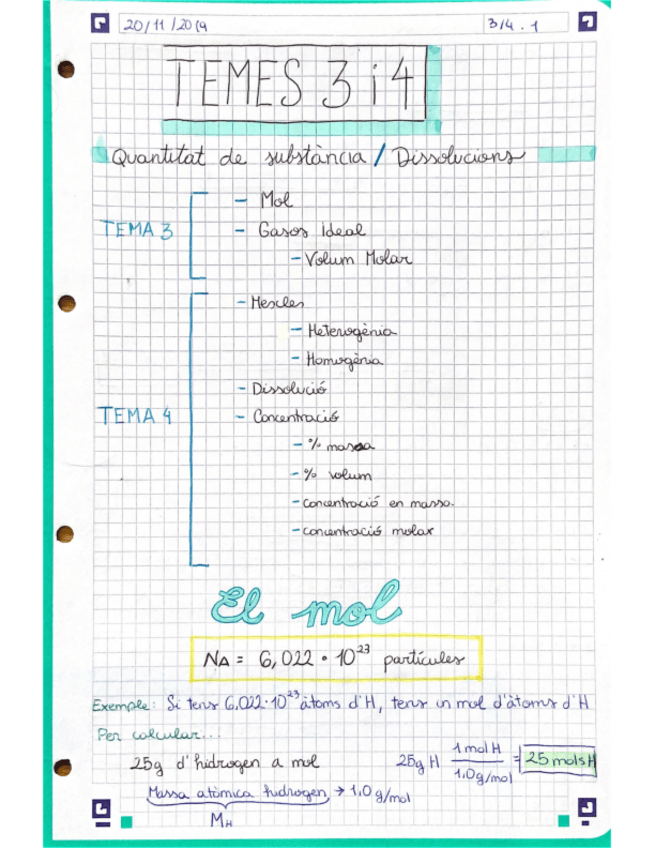 20/11/2019
3/4.1
TEMES 3 i 4
Quantitat de substància / Dissolucions
TEMA 3
- Mol
- Gasos Ideal
- Volum Molar
TEMA 4
- Mescles
- Heterogènia
- Homogènia
- Dissolució
- Concentració
- % massa
- % volum
- concentració en massa.
- concentració molar
El mol
NA = 6,022 · 10²³ partícules
Exemple: Si tens 6,022·10²³ àtoms d'H, tens un mol d'àtoms d'H
Per calcular...
25g d'hidrogen a mol
25g H 1 mol H / 1,0 g/mol = 25 mols H
Massa atòmica hidrogen → 1,0 g/mol
MH